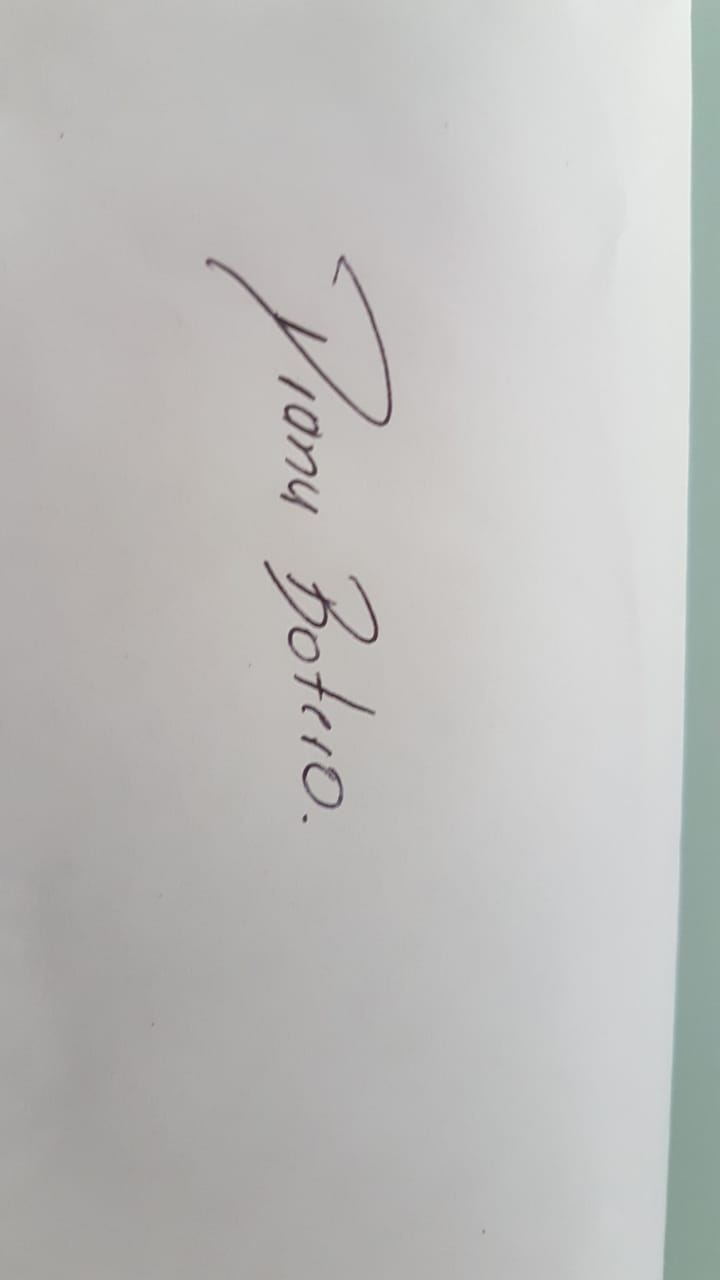 Diana Botero.